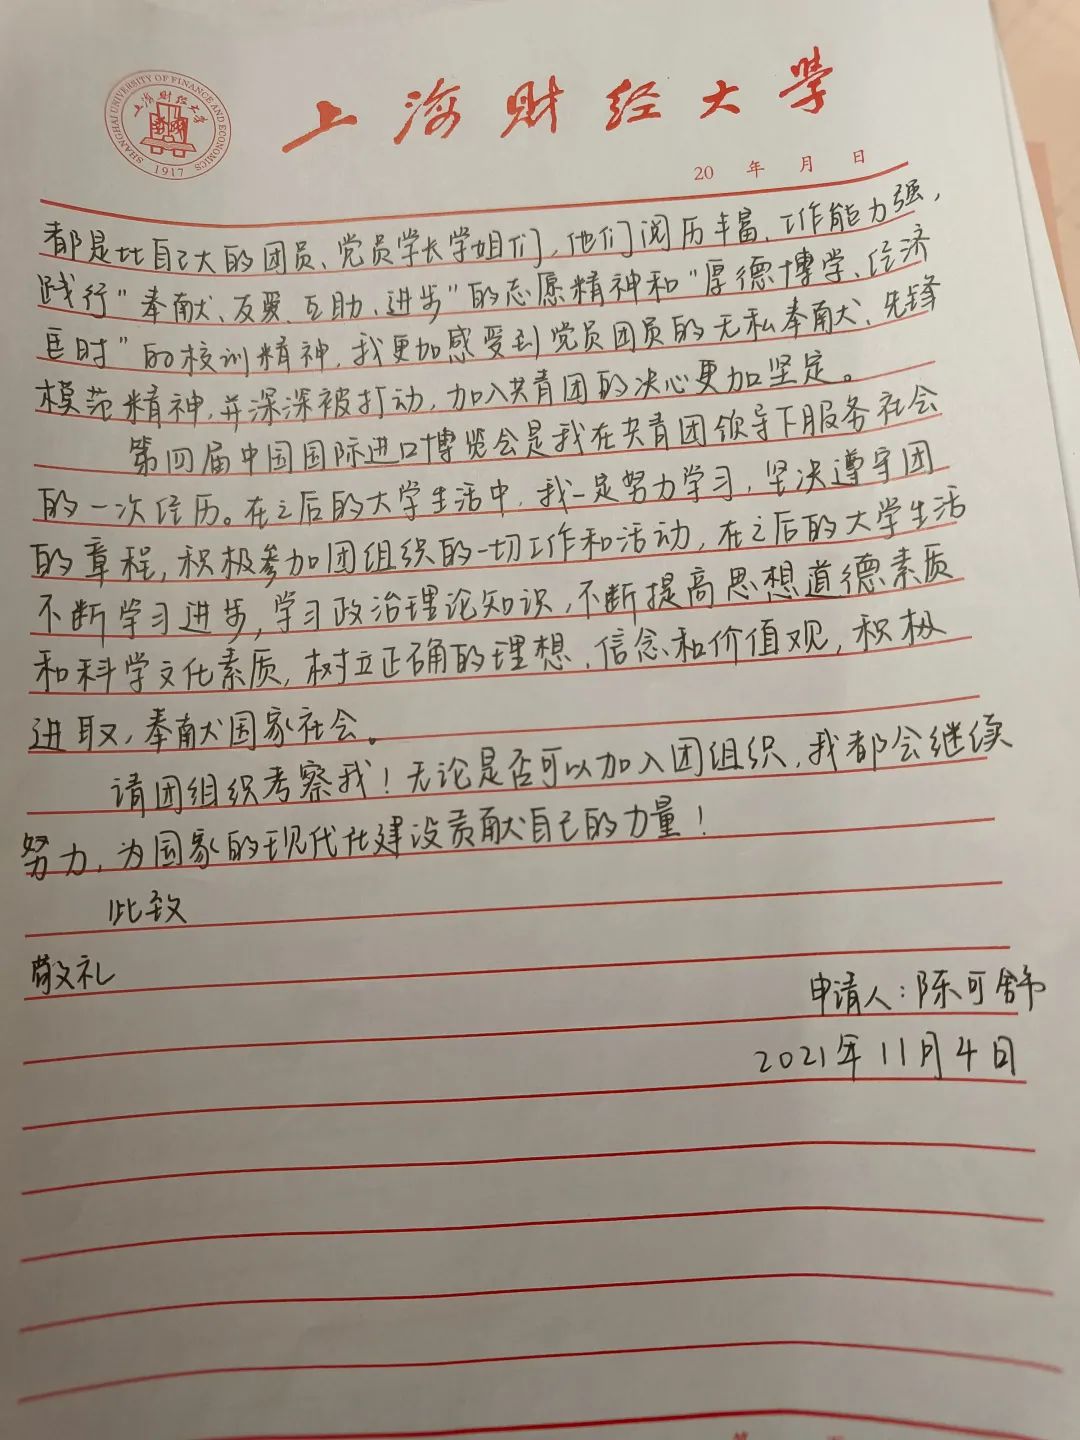 SHANGHAI UNIVERSITY OF FINANCE AND ECONOMICS
上海财经大学
1917
上海财经大学
20 年 月 日
都是比自己大的团员、党员学长学姐们，他们阅历丰富、工作能力强，
践行“奉献、友爱、互助、进步”的志愿精神和“厚德博学、经济
匡时”的校训精神，我更加感受到党员团员的无私奉献、先锋
模范精神，并深深被打动，加入共青团的决心更加坚定。
第四届中国国际进口博览会是我在共青团领导下服务社会
的一次经历。在之后的大学生活中，我一定努力学习，坚决遵守团
的章程，积极参加团组织的一切工作和活动，在之后的大学生活
不断学习进步，学习政治理论知识，不断提高思想道德素质
和科学文化素质，树立正确的理想、信念和价值观，积极
进取，奉献国家社会。
请团组织考察我！无论是否可以加入团组织，我都会继续
努力，为国家的现代化建设贡献自己的力量！
此致
敬礼
申请人：陈可舒
2021年11月4日